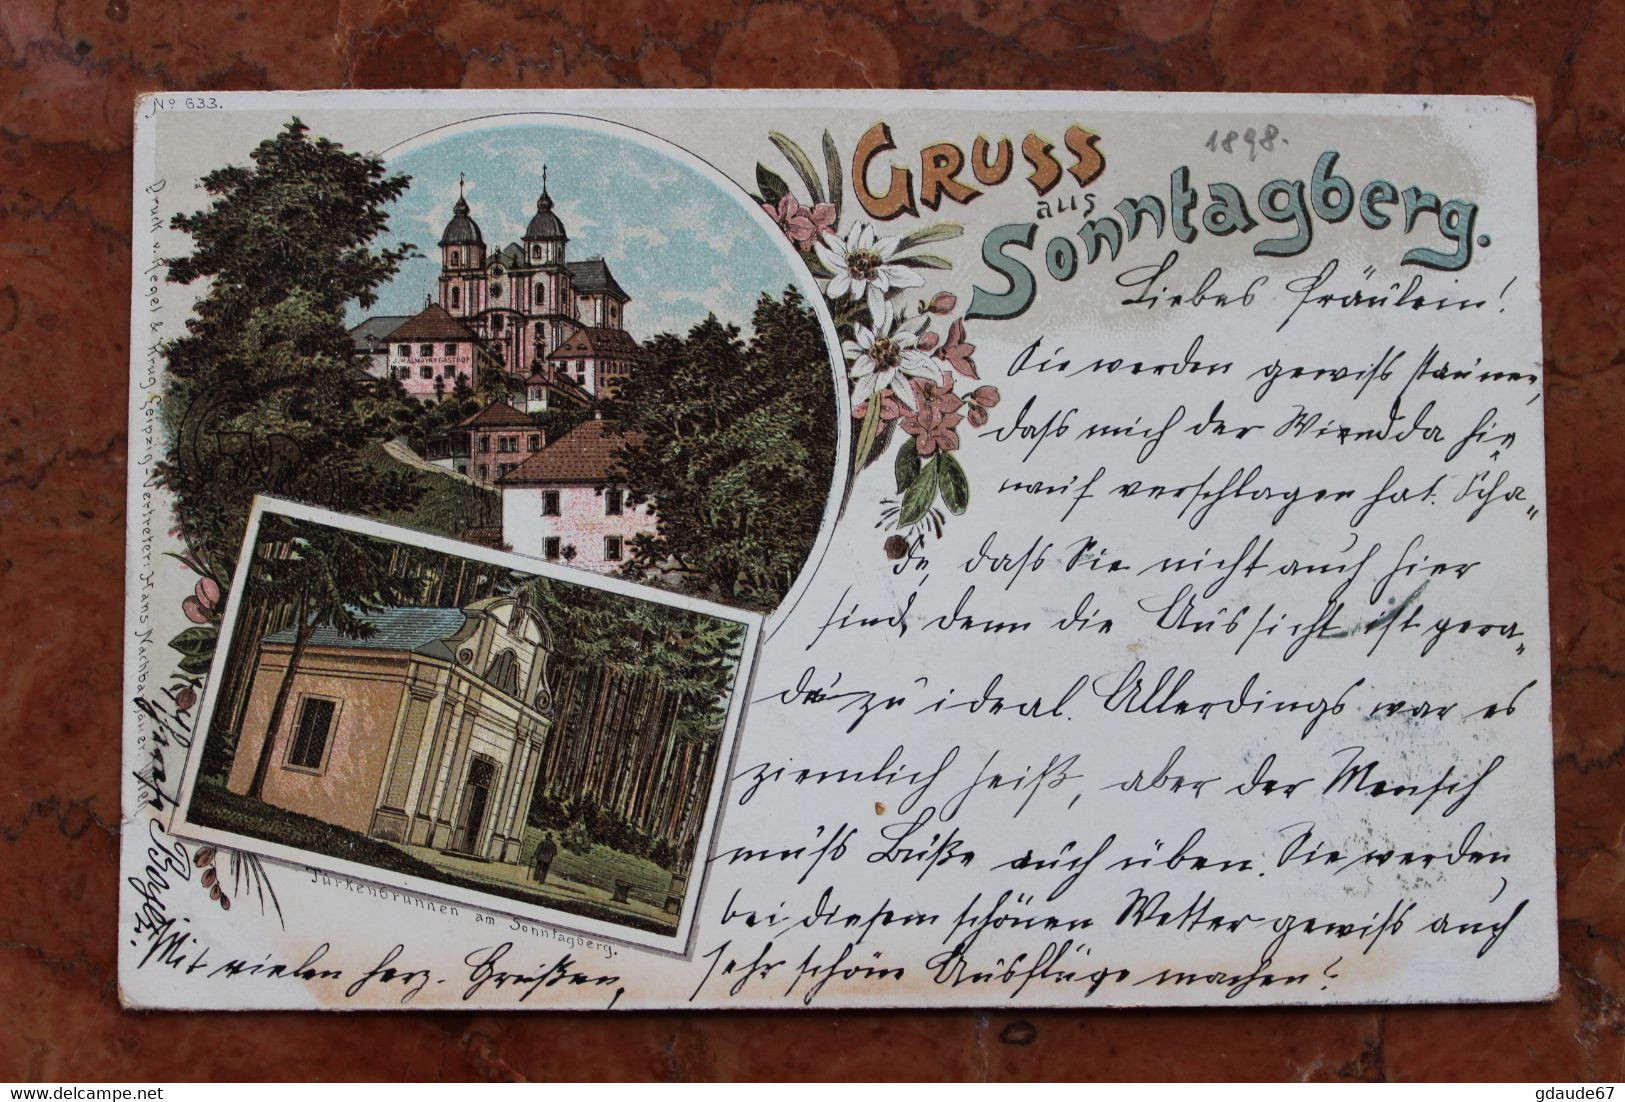 No 633.
1898.
GRUSS
aus
Sonntagberg.
J. HALMAYR GASTHOF
Türkenbrunnen am Sonntagberg.
Druck v. Regel & Krug, Leipzig - Vertreter: Hans Nachbargauer,
Liebes Fräulein!
Sie werden gewiß staunen,
daß mich der hie
rauf verschlagen hat. Scha-
de, daß Sie nicht auch hier
sind, denn die Aussicht ist gera-
de zu ideal. Allerdings war es
ziemlich heiß, aber der Mensch
muß Buße auch üben. Sie werden
bei diesem schönen Wetter gewiß auch
sehr schöne Ausflüge machen?
Mit vielen herz. Grüßen,
delcampe.net
gdaude67